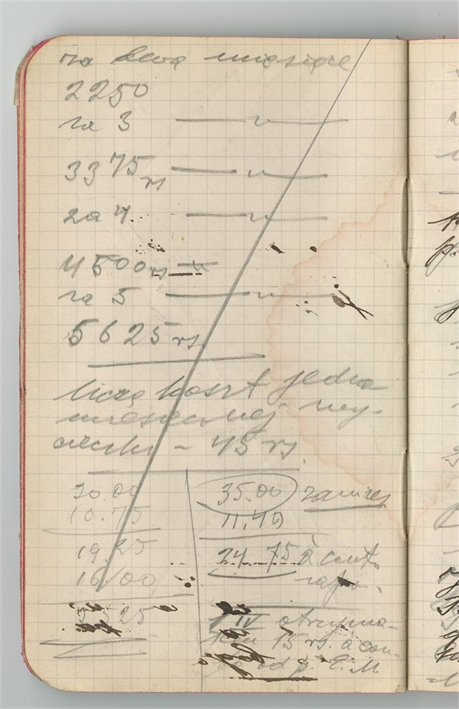 za dwa miesiące
2250
za 3 — " —
3375 rs
za 4. — " —
4500 rs
za 5 — " —
5625 rs.
Liczę koszt jedno
miesięcznej wy-
cieczki – 45 rs.
30.00
10.75
19.25
16.00
25
35.00
11.40
24.75 à cont.
IV otrzyma-
15 rs. à con-
od p. E. M